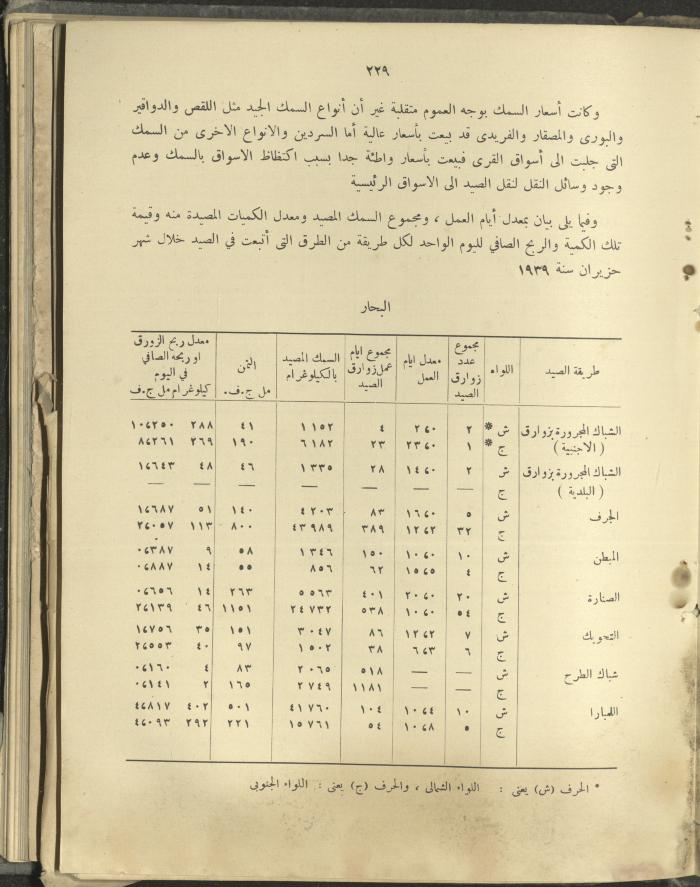 ٢٢٩
وكانت أسعار السمك بوجه العموم متقلبة غير أن أنواع السمك الجيد مثل اللقص والدواقير
والبورى والمصقار والفريدى قد بيعت بأسعار عالية أما السردين والانواع الاخرى من السمك
التى جلبت الى أسواق القرى فبيعت بأسعار واطئة جدا بسبب اكتظاظ الاسواق بالسمك وعدم
وجود وسائل النقل لنقل الصيد الى الاسواق الرئيسية
وفيما يلى بيان بمعدل أيام العمل ، ومجموع السمك المصيد ومعدل الكميات المصيدة منه وقيمة
تلك الكمية والربح الصافي لليوم الواحد لكل طريقة من الطرق التى أتبعت في الصيد خلال شهر
حزيران سنة ١٩٣٩
البحار
طريقة الصيد | اللواء | مجموع عدد زوارق الصيد | معدل ايام العمل | مجموع ايام عمل زوارق الصيد | السمك المصيد بالكيلوغرام | الثمن مل ج.ف. | معدل ربح الزورق او ربحه الصافي في اليوم كيلوغرام مل ج.ف
الشباك المجرورة بزوارق ش * ٢ ٢،٠ ٤ ١١٥٢ ٤١ ٢٨٨ ١٠،٢٥٠
( الاجنبية ) ج * ١ ٢٣،٠ ٢٣ ٦١٨٢ ١٩٠ ٢٦٩ ٨،٢٦١
الشباك المجرورة بزوارق ش ٢ ١٤،٠ ٢٨ ١٣٣٥ ٤٦ ٤٨ ١،٦٤٣
( البلدية ) ج — — — — — — —
الجرف ش ٥ ١٦،٠ ٨٣ ٤٢٠٣ ١٤٠ ٥١ ١،٦٨٧
ج ٣٢ ١٢،٢ ٣٨٩ ٤٣٩٨٩ ٨٠٠ ١١٣ ٢،٠٥٧
المبطن ش ١٠ ١٠،٠ ١٥٠ ١٣٤٦ ٥٨ ٩ ٠،٣٨٧
ج ٤ ١٥،٥ ٦٢ ٨٥٦ ٥٥ ١٤ ٠،٨٨٧
الصنارة ش ٢٠ ٢٠،٠ ٤٠١ ٥٥٦٣ ٢٦٣ ١٤ ٠،٦٥٦
ج ٥٤ ١٠،٠ ٥٣٨ ٢٤٧٣٢ ١١٥١ ٤٦ ٢،١٣٩
التحويك ش ٧ ١٢،٢ ٨٦ ٣٠٤٧ ١٥١ ٣٥ ١،٧٥٦
ج ٦ ٦،٣ ٣٨ ١٥٠٢ ٩٧ ٤٠ ٢،٥٥٣
شباك الطرح ش — — ٥١٨ ٢٠٦٥ ٨٣ ٤ ٠،١٦٠
ج — — ١١٨١ ٢٧٤٩ ١٦٥ ٢ ٠،١٤١
اللمبارا ش ١٠ ١٠،٤ ١٠٤ ٤١٧٦٠ ٥٠١ ٤٠٢ ٤،٨١٧
ج ٥ ١٠،٨ ٥٤ ١٥٧٦١ ٢٢١ ٢٩٢ ٤،٠٩٣
* الحرف (ش) يعنى : اللواء الشمالى ، والحرف (ج) يعنى : اللواء الجنوبى